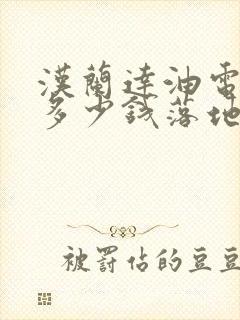 漢蘭達油電
多少錢落地
被罰估的豆豆